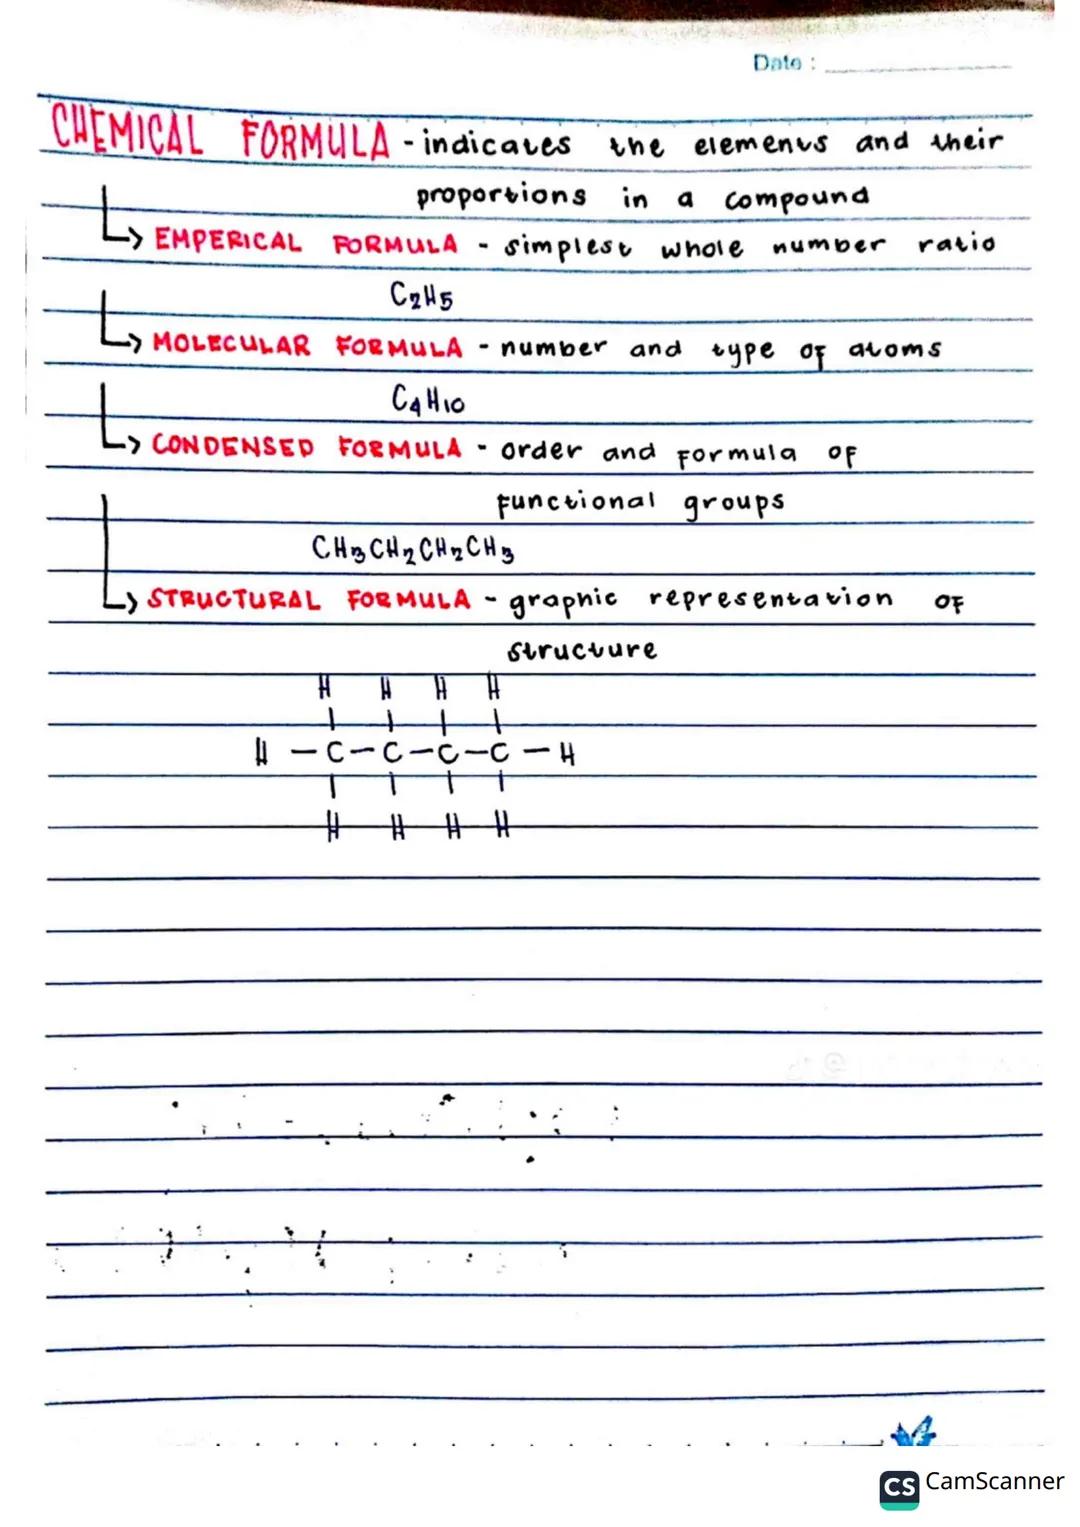 Date :
CHEMICAL FORMULA - indicates the elements and their
proportions in a compound
EMPERICAL FORMULA - simplest whole number ratio
C2H5
MOLECULAR FORMULA - number and type of atoms
C4H10
CONDENSED FORMULA - order and formula of
functional groups
CH3CH2CH2CH3
STRUCTURAL FORMULA - graphic representation of
structure
H H H H
H - C - C - C - C - H
H H H H
CS CamScanner